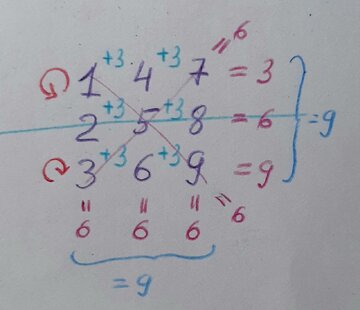 +3 +3 = 6
1 4 7 = 3
+3 +3
2 5 8 = 6 = 9
+3 +3
3 6 9 = 9
= = = = 6
6 6 6
= 9